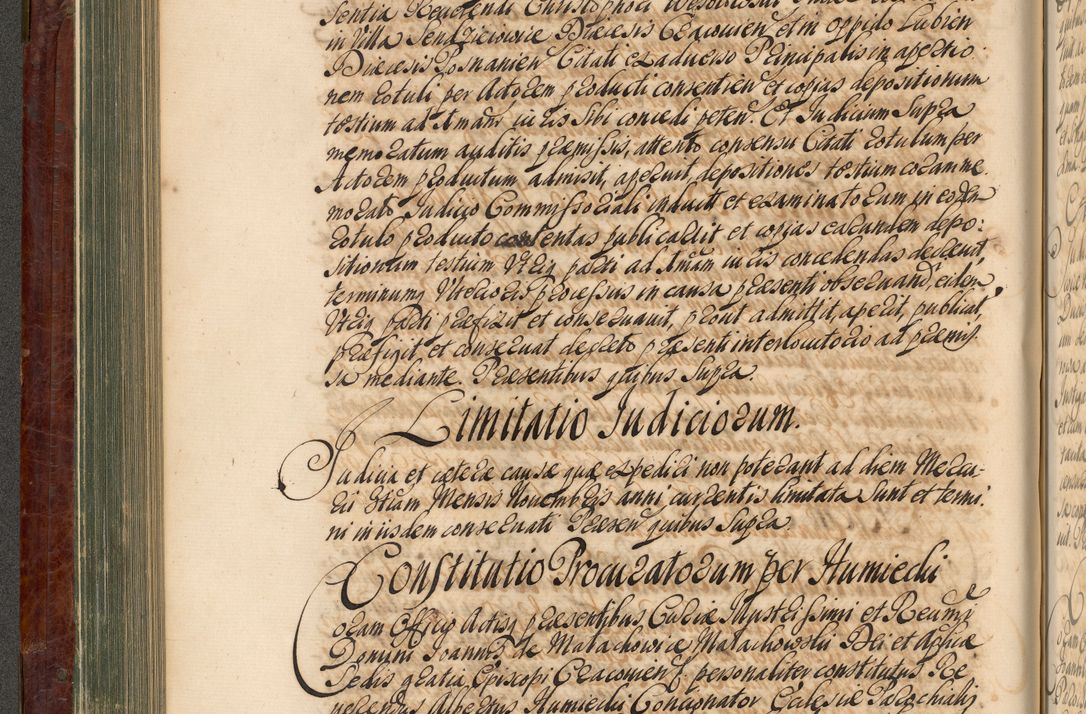 sentia Reverendi Christophori
in Villa Sendzieiowice Diæcesis Cracovien et in oppido Lubien
Diæcesis Posnanien Citati ex adverso Principalis in apertio
nem Rotuli per Actorem producti consentien et copias depositionum
testium ad Amanr jur eis sibi concedi peten. Et Judicium Supra
memoratum auditis præmissis, attento consensu Citati Rotulum per
Actorem productum admisit, aperuit, depositiones testium coram me
morato Judicio Commissoriali induit et examinatorum in eodem
Rotulo producto contentas publicavit et copias earundem depo:
sitionum testium Utrig parti ad Amam jur eis concedendas decrevit,
terminumq Ulterioris processus in causa præsenti observand, eidem
Utriq parti præfixit et conservavit, prout admittit, aperit, publicat,
præfigit, et conservat decreto præsenti interlocutorio ad præmis
sa mediante. Præsentibus quibus Supra.
Limitatio Judiciorum.
Judicia et cæteræ causæ quæ expediri non poterant ad diem Mercu-
rii 8tiam Mensis Novembris anni currentis limitata sunt et termi
ni in iisdem conservati Præsen quibus Supra.
Constitutio Procuratorum per Humiecki
Coram Officio Actisq præsentibus Curiæ Illustrissimi et Reumi
Domini Joannis de Malachowice Malachowski Dei et Aplicæ
Sedis gratia Episcopi Cracovien personaliter constitutus Re
verendus Albertus Humiecki Concionator Ecclesiæ Parochialis